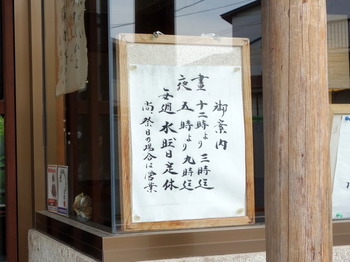 御案内
晝 十二時より 三時迄
夜 五時より 九時迄
毎週 水曜日定休
尚祭日の場合は営業